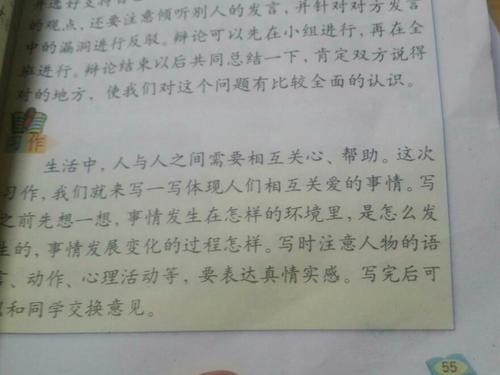 并选好支持自己
的观点，还要注意倾听别人的发言，并针对对方发言
中的漏洞进行反驳。辩论可以先在小组进行，再在全
班进行。辩论结束以后共同总结一下，肯定双方说得
对的地方，使我们对这个问题有比较全面的认识。
习作
生活中，人与人之间需要相互关心、帮助。这次
习作，我们就来写一写体现人们相互关爱的事情。写
之前先想一想，事情发生在怎样的环境里，是怎么发
生的，事情发展变化的过程怎样。写时注意人物的语
言、动作、心理活动等，要表达真情实感。写完后可
和同学交换意见。
55